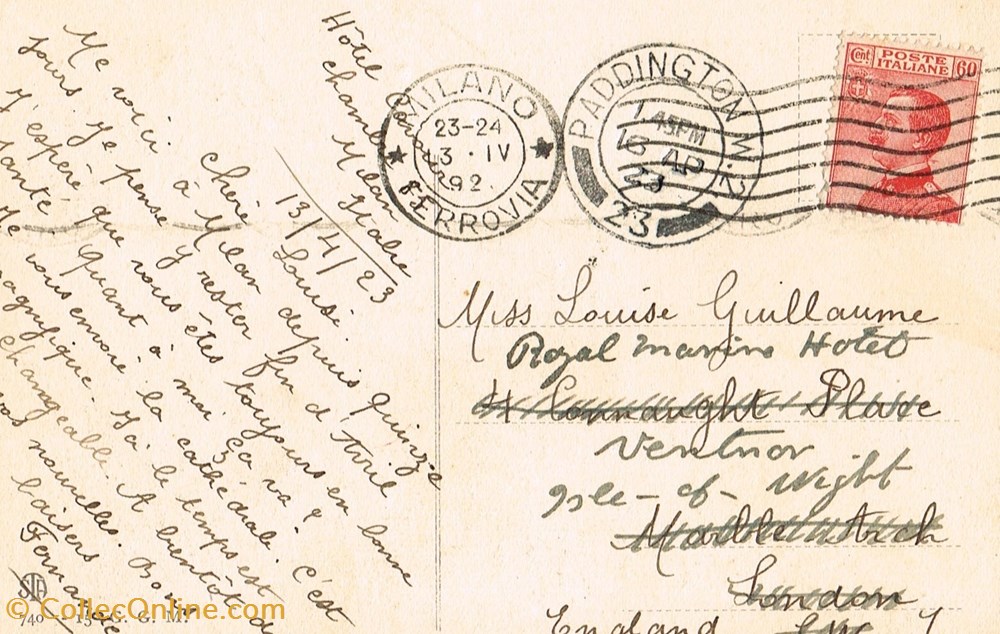 Hôtel
chambord
Milan Italie
13/4/23
Chère Louise
Me voici à Milan depuis quinze
jours. Je pense y rester fin d'Avril
J'espère que vous êtes toujours en bonne
santé. Quant à moi ça va &
Je vous envoie la cathédrale c'est
magnifique. Ici le temps est
changeable. A bientôt de
vos nouvelles. Bons
baisers
Fernande
MILANO
23-24
13·IV
192
FERROVIA
PADDINGTON. W.2.
1.45PM
18 AP
23
23
Cent
POSTE
ITALIANE
60
Miss Louise Guillaume
Royal Marine Hotel
4 Connaught Place
Ventnor
Isle-of-Wight
Marble Arch
London
England
STA
740
© CollecOnline.com